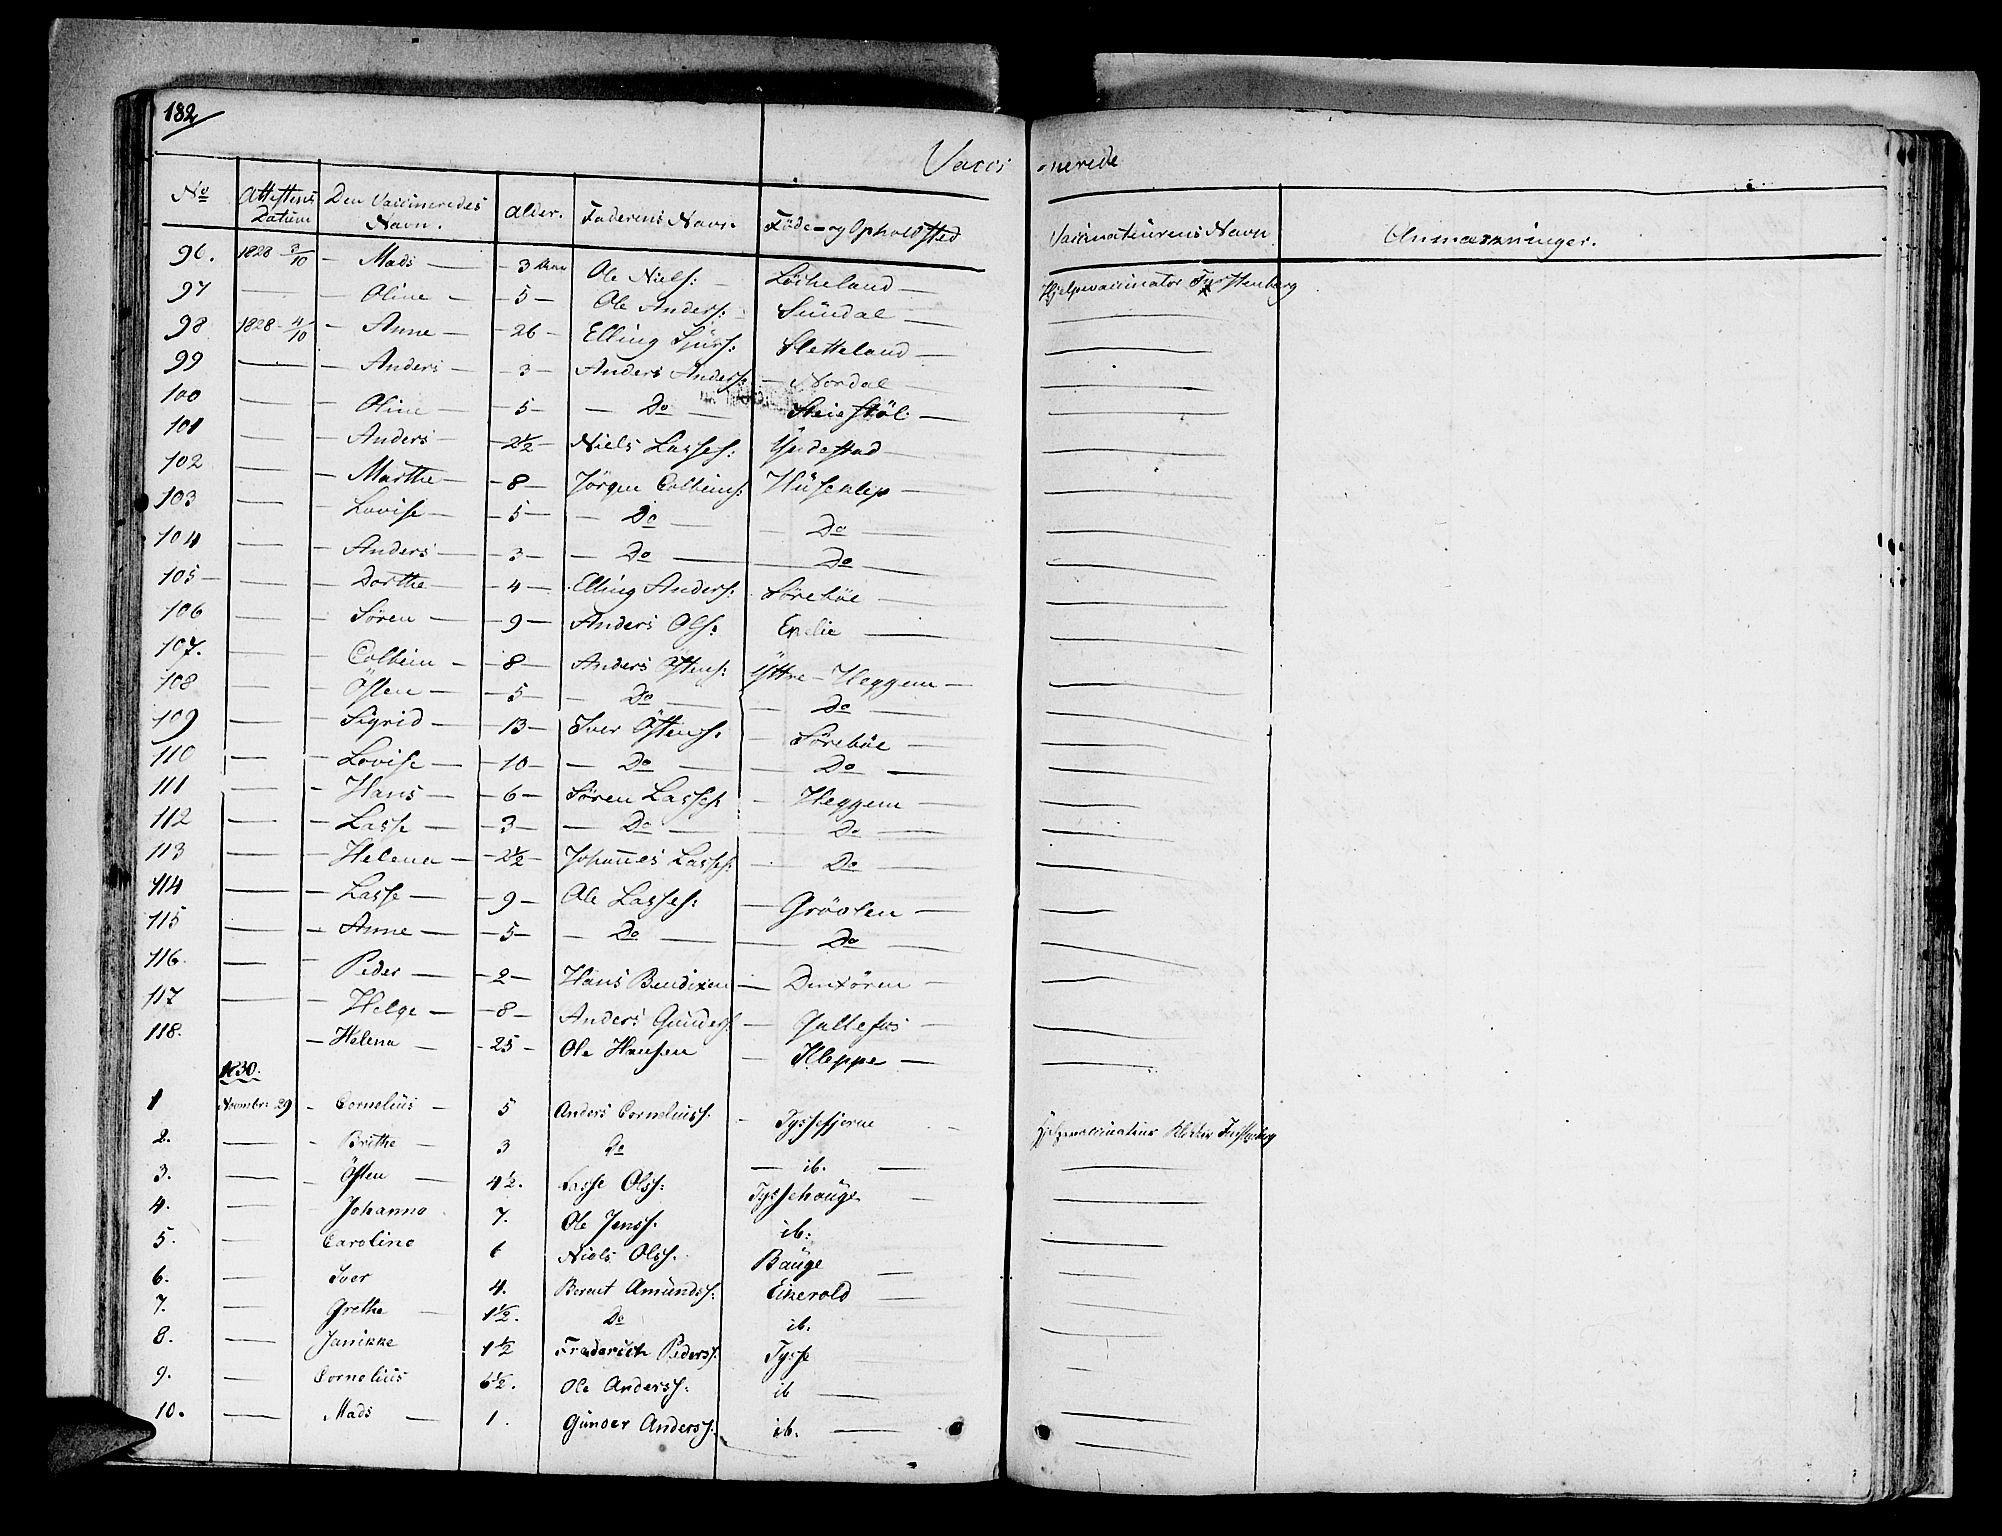 182
Vacci nerede
No Attestens Datum Den Vaccineredes Navn. Alder. Faderens Navn. Föde- og Opholdsted Vaccinateurens Navn Anmærkninger.
96. 1828 3/10 – Mads – 3 Ole Niels: – Löcheland – Hjelpevaccinator Fürstenberg
97 — Oline – 5 – Ole Anders: – Sündal —
98 1828 – 4/10 – Anne – 26 – Elling Sjürs: Sletteland —
99 — Anders – 3 – Anders Anders: – Nordal —
100 — Oline – 5 – Do — Steiestöl —
101 — Anders – 2½ – Niels Lasses: Yndestad —
102 — Marthe – 8 – Jörgen Colbeins: Hüseklep —
103 — Lovise – 5 – Do — Do —
104 — Anders – 3 – Do — Do —
105 — Dorthe – 4 – Elling Anders: Söreböe —
106 — Sören – 9 – Anders Ols: Endie —
107. — Colbein – 8 – Anders Östens: Yttre – Heggem —
108 — Östen – 5 – Do — Do —
109 — Sigrid – 13 – Iver Östens: – Söreböe —
110 — Lovise – 10 – Do — Do —
111 — Hans – 6 – Sören Lasses – Heggem —
112 — Lasse – 3 – Do — Do —
113 — Helena – 2½ – Johannes Lasses: – Do —
114 — Lasse – 9 – Ole Lasses: – Grövlen —
115 — Anne – 5 – Do — Do —
116. — Peder – 2 – Hans Bendixen – —
117 — Helge – 8 – Anders Gunders: – Gullefos —
118. – Helena – 25 – Ole Hansen – Kleppe —
1830.
1 Novembr: 29 – Cornelius – 5 Anders Corneliuss: – Tyssefjerne Hjelpevaccinateur Klokker Fürstenberg
2. — Brithe – 3 do — ib. —
3. — Östen — 4½. Lasse Olss: Tyssehauge —
4. — Johanna 7. Ole Jenss: ib:
5. — Caroline 6 Niels Olss: Bauge —
6. — Iver 4. Berent Amundss: Eikevold —
7. — Grethe — 1½. Do ib.
8. — Janikke 1½ Frederich Pederss: Tysse
9. — Cornelius 6½. Ole Anderss: ib —
10. — Mads — 1. Gunder Anderss: ib. —